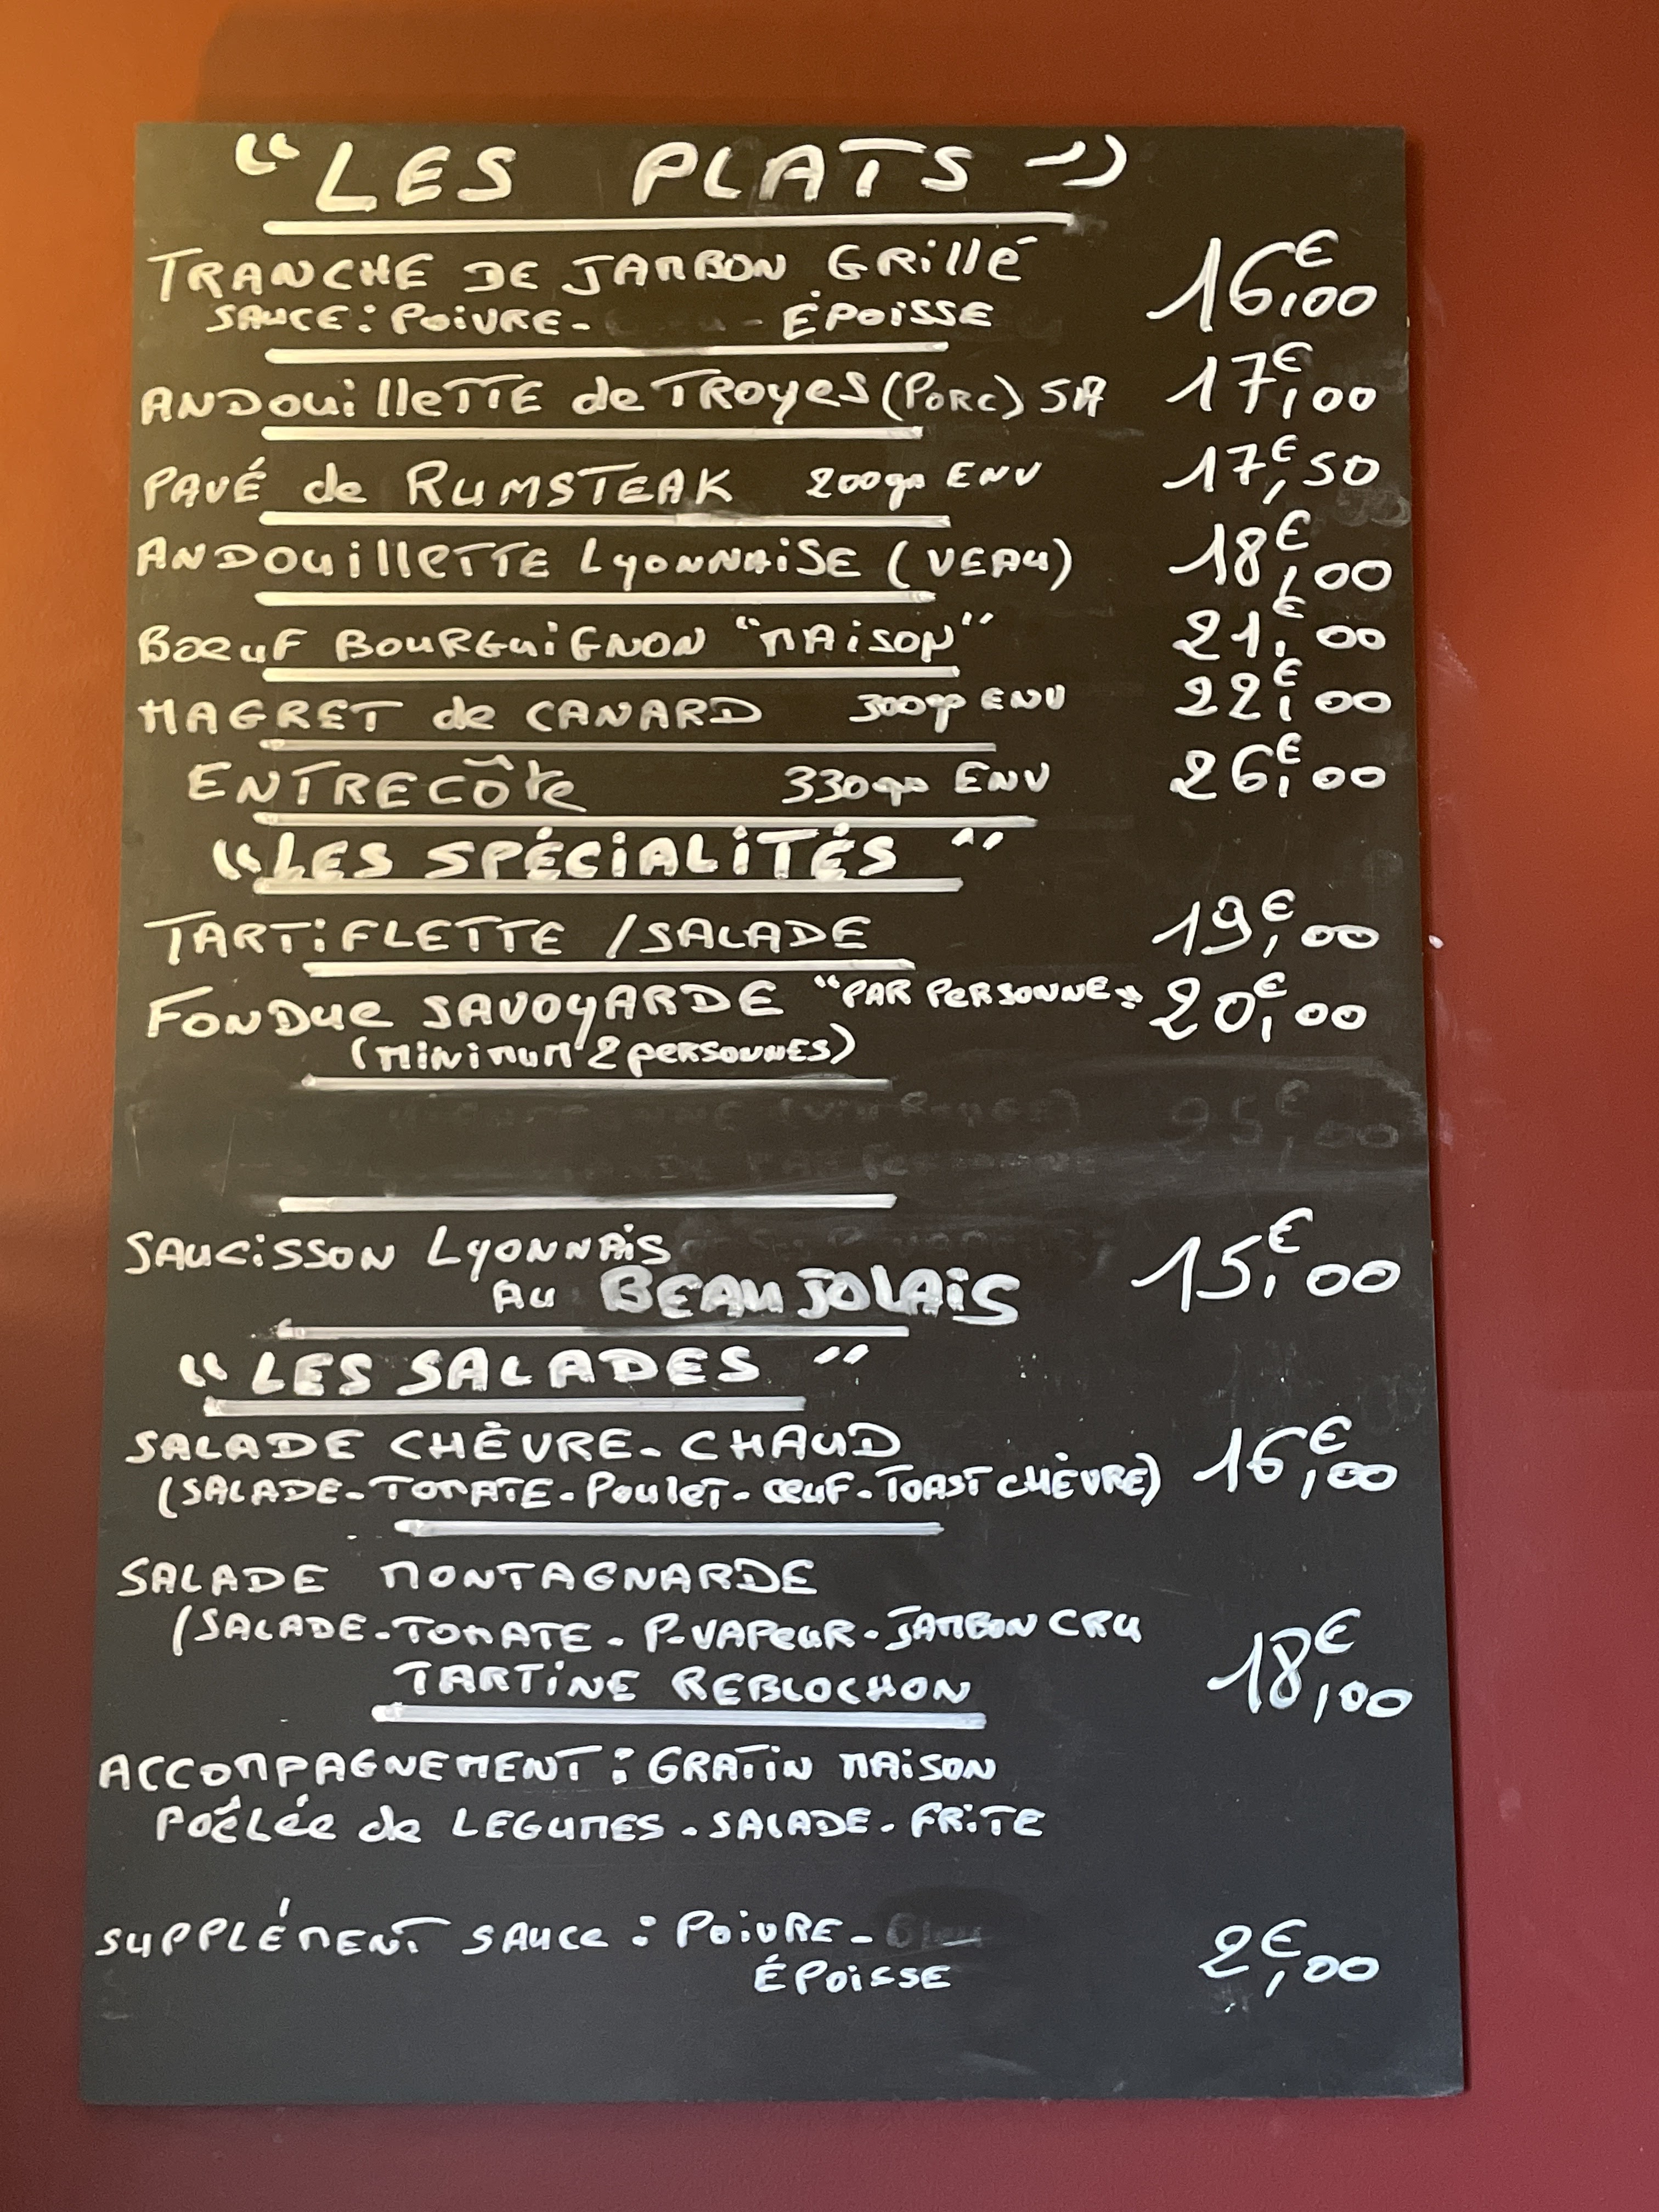 “LES PLATS”
TRANCHE DE JAMBON GRILLÉ 16€,00
SAUCE : POIVRE - - ÉPOISSE
ANDOUILLETTE de TROYES (PORC) 5A 17€,00
PAVÉ de RUMSTEAK 200gr ENV 17€,50
ANDOUILLETTE LYONNAISE (VEAU) 18€,00
BŒUF BOURGUIGNON “MAISON” 21€,00
MAGRET de CANARD 300gr ENV 22€,00
ENTRECÔTE 330gr ENV 26€,00
“LES SPÉCIALITÉS”
TARTIFLETTE / SALADE 19€,00
FONDUE SAVOYARDE “PAR PERSONNE” 20€,00
(MINIMUM 2 PERSONNES)
25€,00
SAUCISSON LYONNAIS
AU BEAUJOLAIS 15€,00
“LES SALADES”
SALADE CHÈVRE-CHAUD
(SALADE-TOMATE-POULET-ŒUF-TOAST CHÈVRE) 16€,00
SALADE MONTAGNARDE
(SALADE-TOMATE-P-VAPEUR-JAMBON CRU
TARTINE REBLOCHON 18€,00
ACCOMPAGNEMENT : GRATIN MAISON
POÊLÉE de LEGUMES - SALADE - FRITE
SUPPLÉMENT SAUCE : POIVRE - Bleu
ÉPOISSE 2€,00